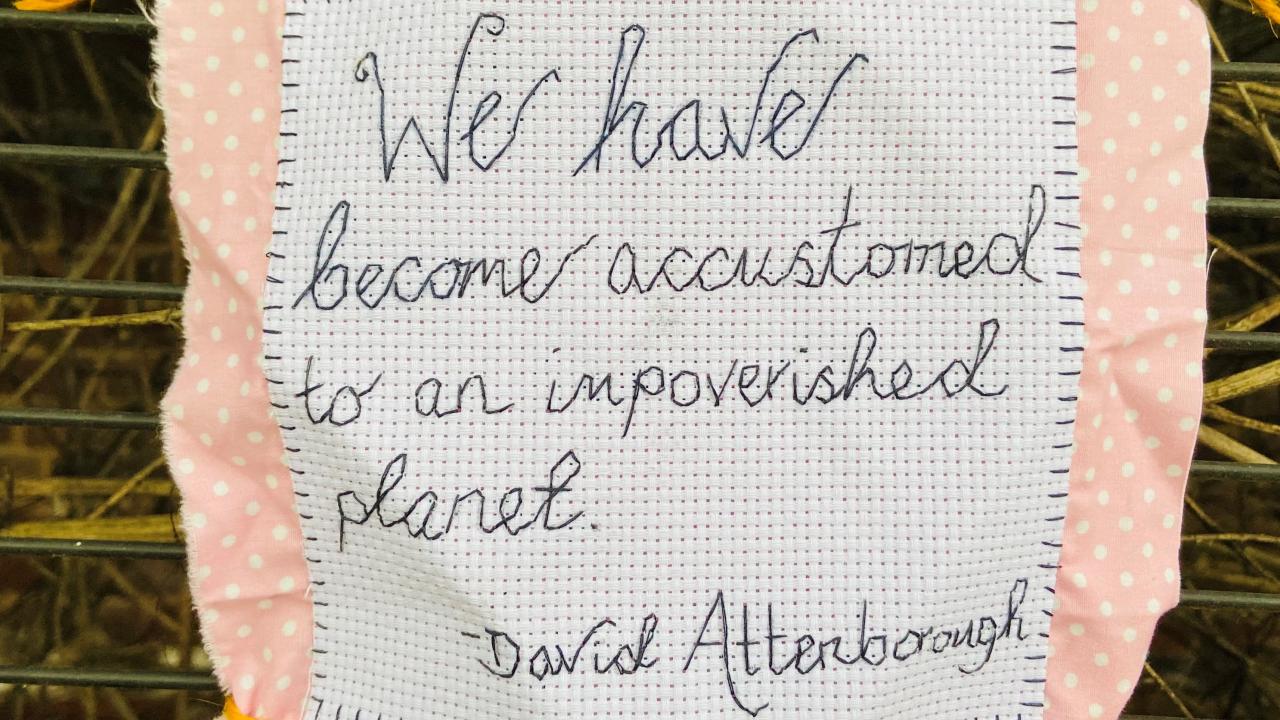 We have
become accustomed
to an impoverished
planet.
-David Attenborough